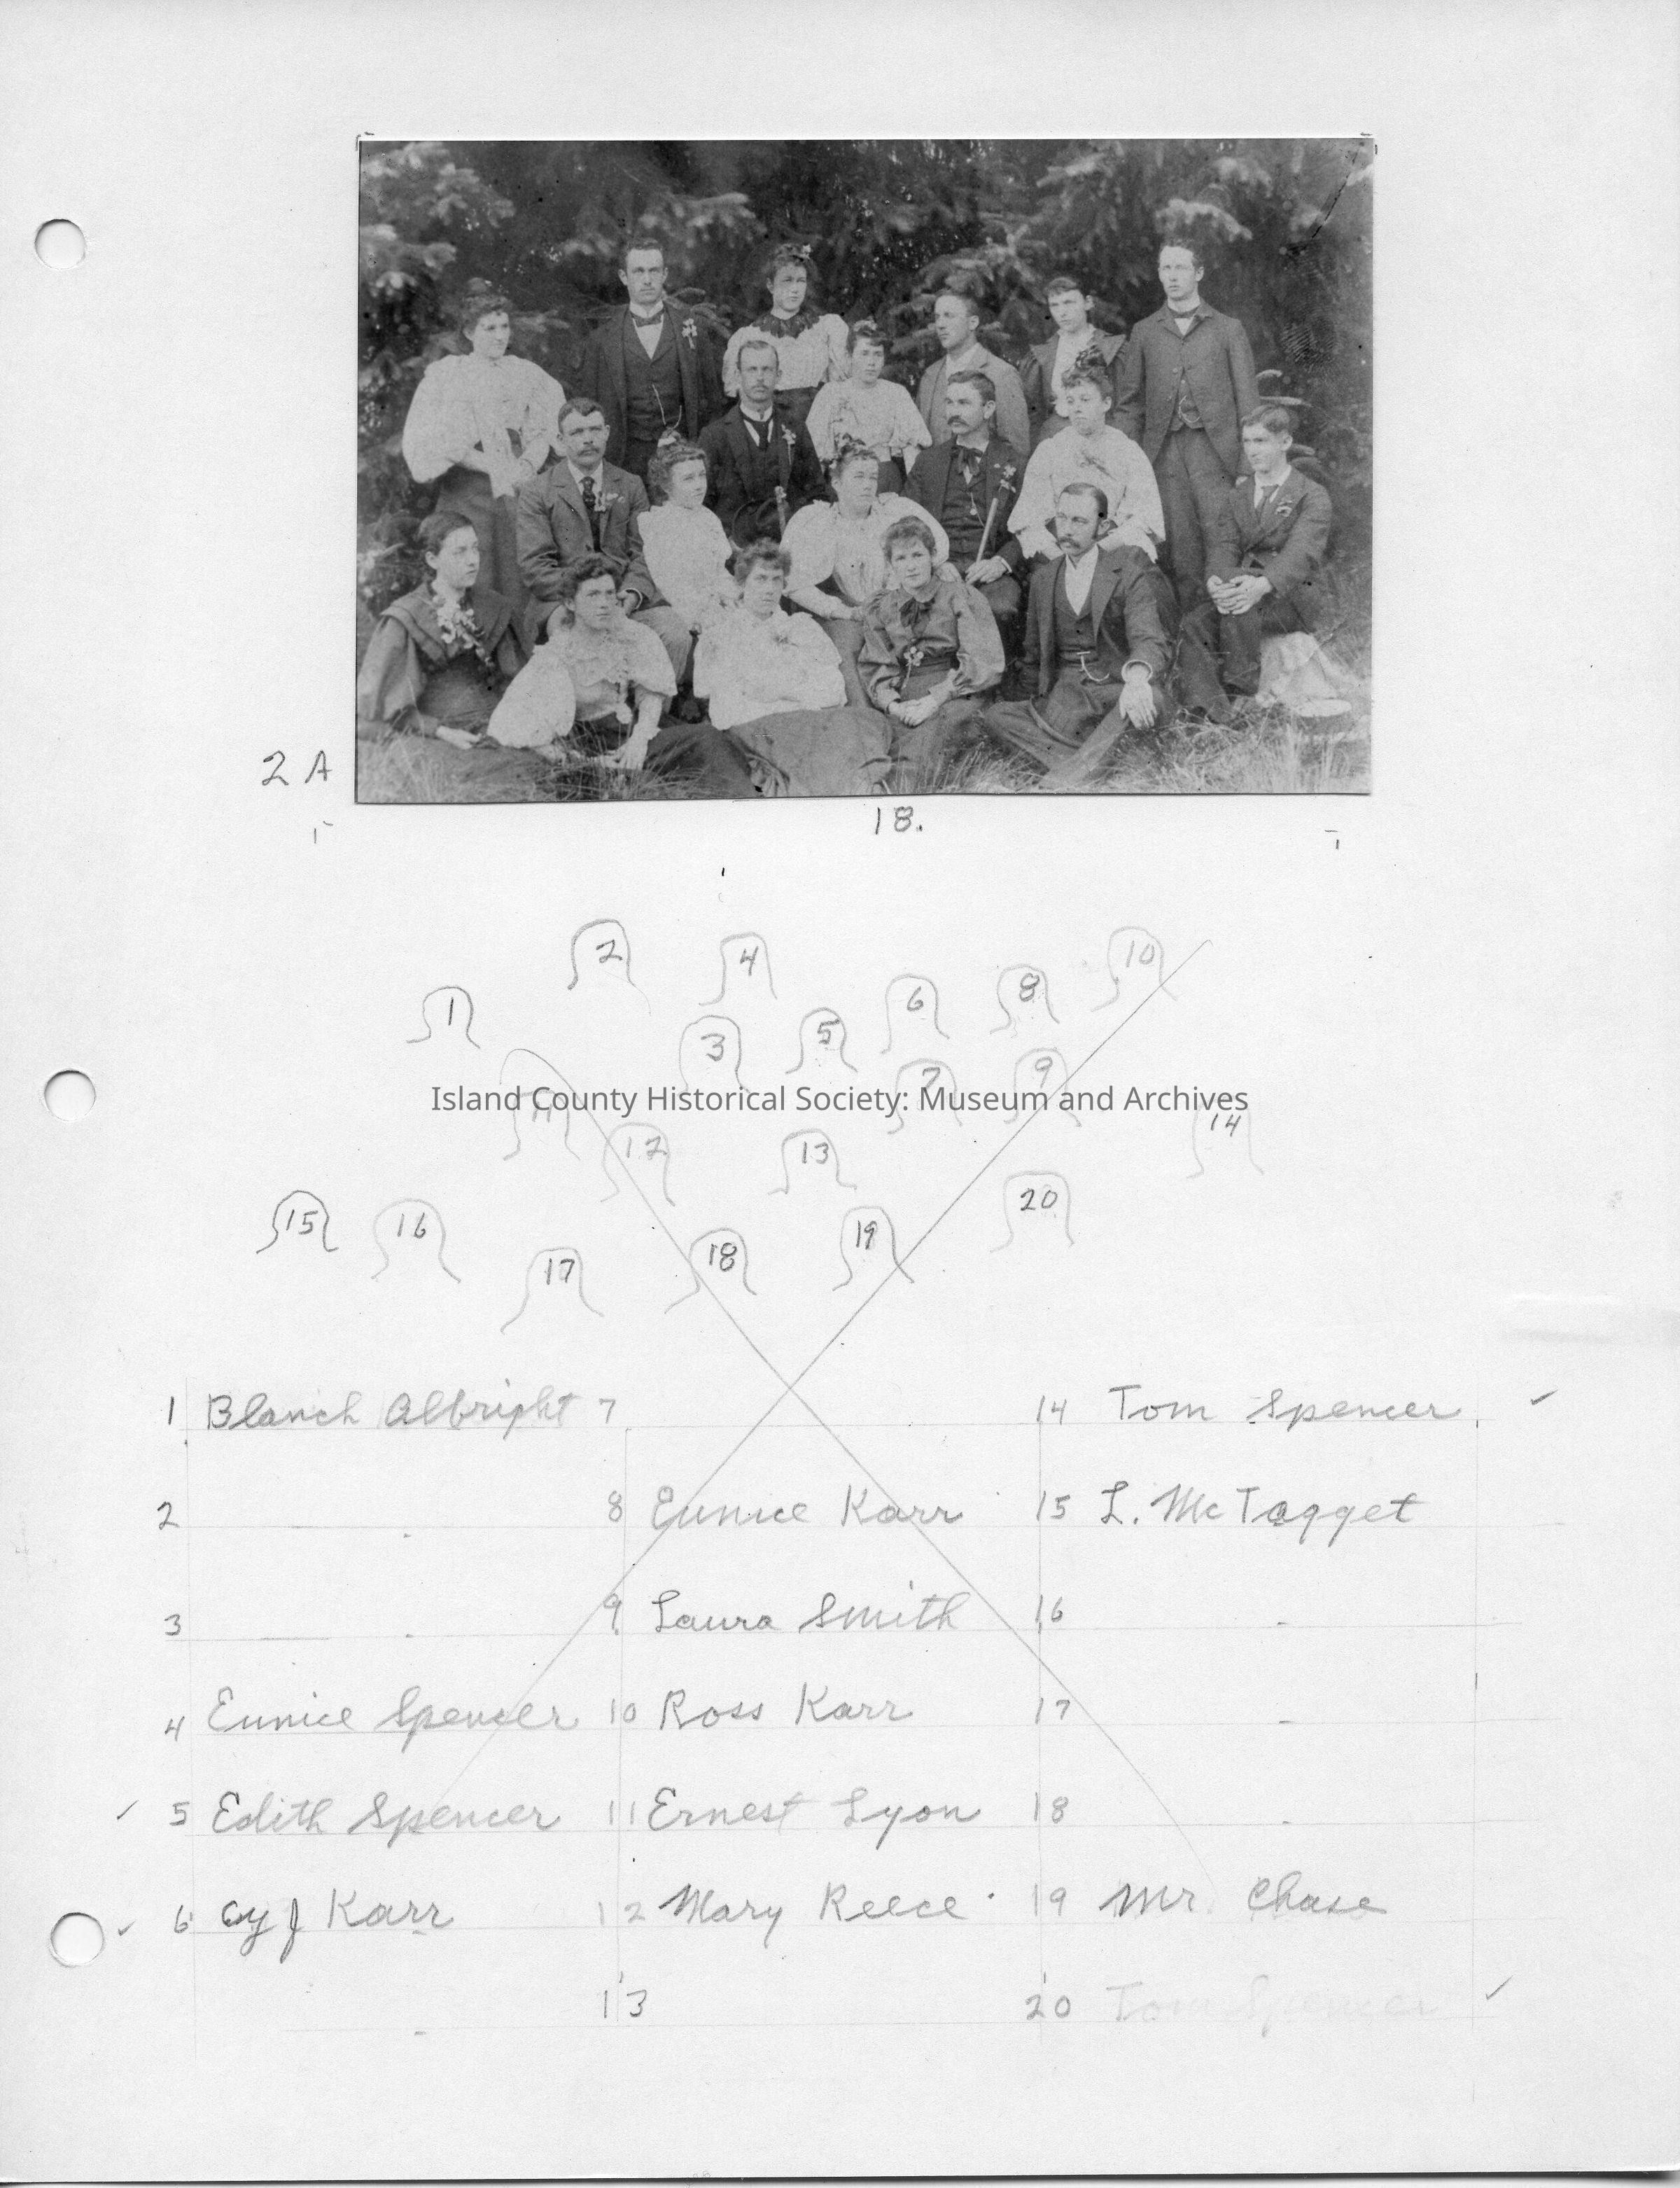 2 A
18.
2 4 10
1 6 8
3 5
7 9
Island County Historical Society: Museum and Archives
11 14
12 13
15 16 20
17 18 19
1 Blanch Albright 7 14 Tom Spencer
2 8 Eunice Karr 15 L. McTagget
3 9 Laura Smith 16
4 Eunice Spencer 10 Ross Karr 17
5 Edith Spencer 11 Ernest Lyon 18
6 Cy J Karr 12 Mary Reece 19 Mr. Chase
13 20 Tom Spencer